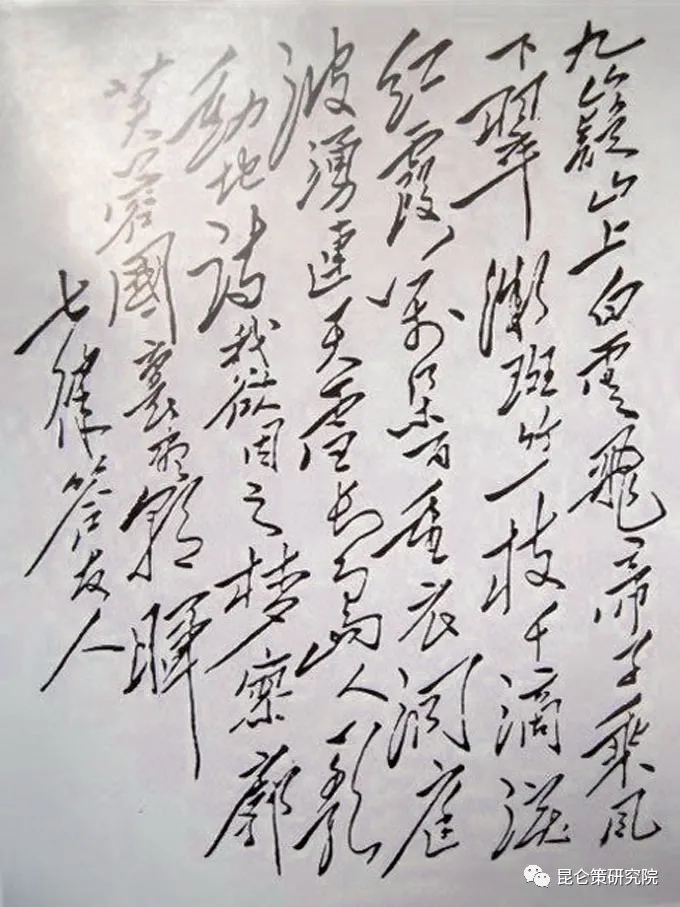 九嶷山上白雲飛帝子乘风
下翠微斑竹一枝千滴淚
红霞萬朵百重衣洞庭
波湧連天雪長島人歌
動地诗我欲因之梦寥廓
芙蓉國裏盡朝暉
七律答友人
昆仑策研究院